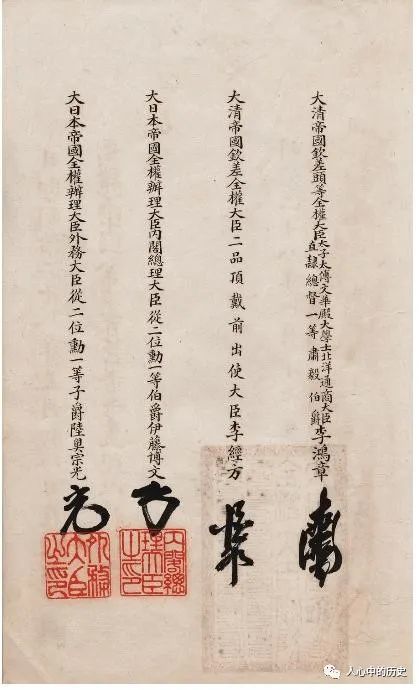 大清帝國欽差頭等全權大臣太子太傅文華殿大學士北洋通商大臣直隸總督一等肅毅伯爵李鴻章
大清帝國欽差全權大臣二品頂戴前出使大臣李經方
大日本帝國全權辦理大臣內閣總理大臣從二位勳一等伯爵伊藤博文
大日本帝國全權辦理大臣外務大臣從二位勳一等子爵陸奧宗光
內閣總理大臣之印
外務大臣之印
人心中的历史